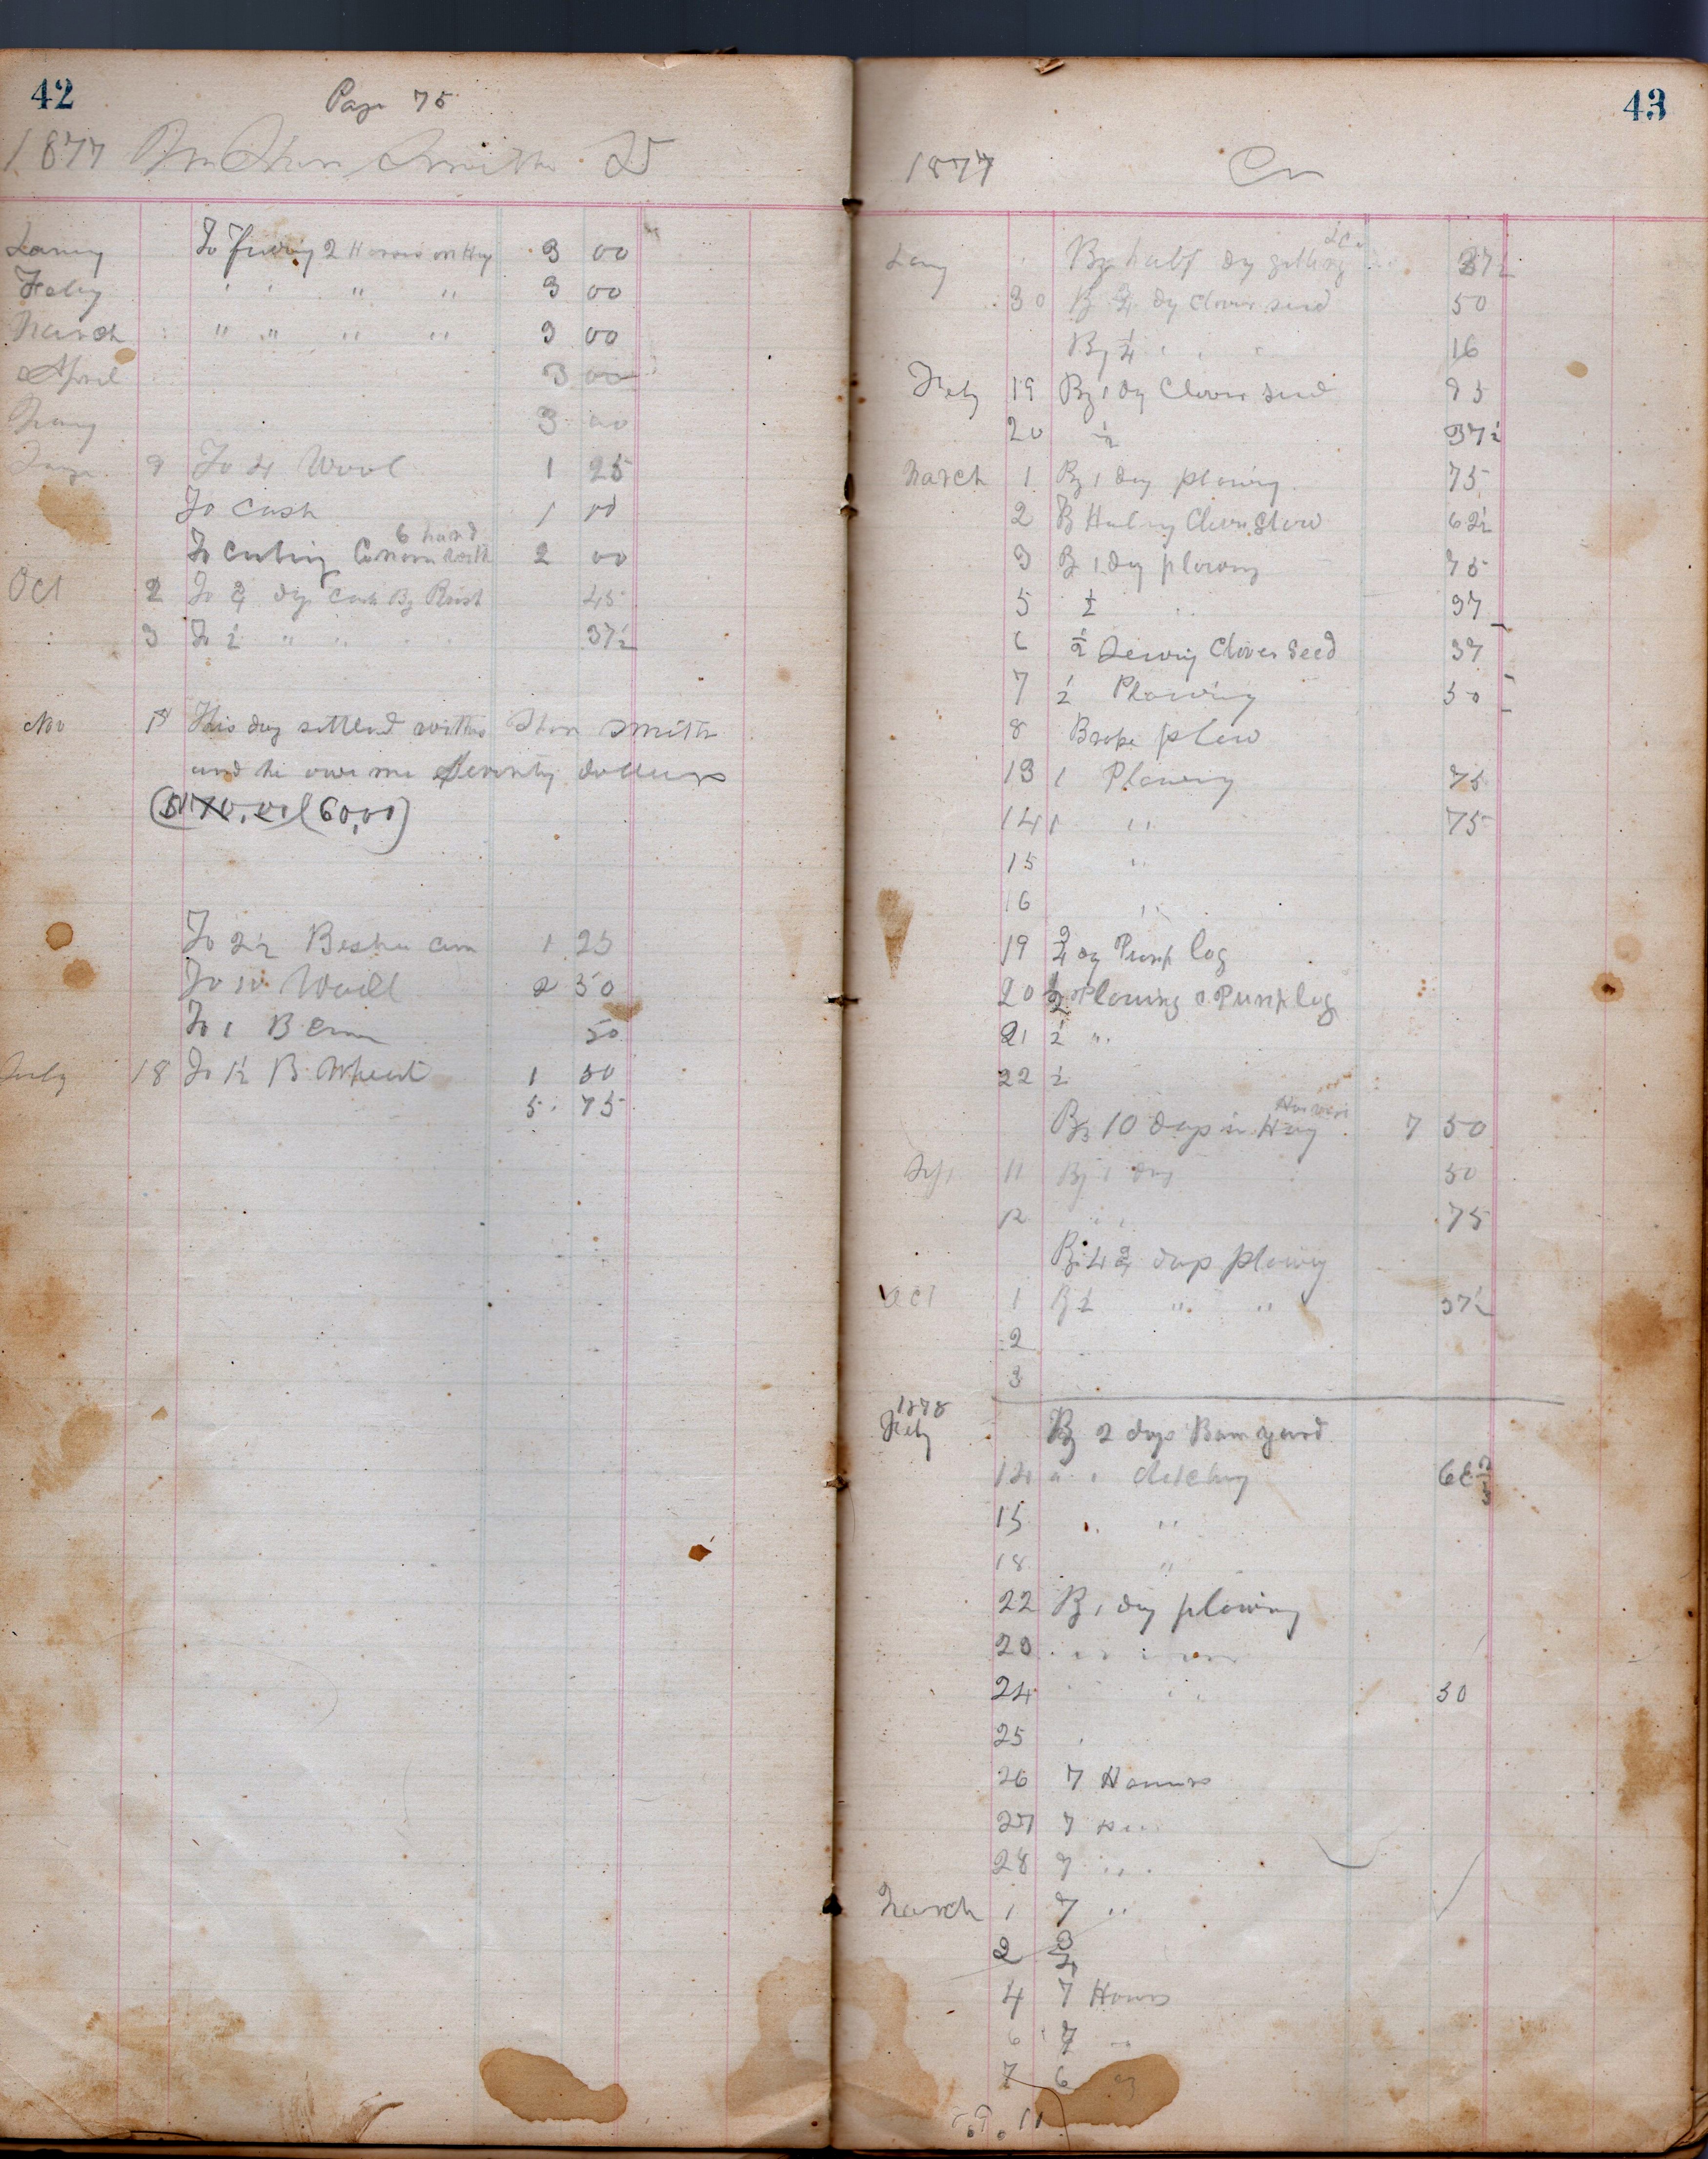 42
Page 75
1877 Smith Dr
To 2 Horses on Hay 3 00
Feby " " " " 3 00
March " " " " 3 00
April 3 00
3 00
9 To 4 Wool 1 25
To Cash 1 00
6 hand
To Cuting 2 00
Oct 2 To 3/4 day Cash By 45
3 To 1/2 " " 37½
Nov 1st This day settled with Smith
and he owe me Seventy dollars
(60,00)
To 2½ 1 25
To 10 2 50
To 1 B 50
July 18 To 1½ B Wheat 1 50
5. 75
43
1877 Cr
By half dy 37½
30 By 3/4 dy Clover seed 50
By 1/4 " " 16
Feby 19 By 1 dy Clover seed 75
20 ½ 37½
March 1 By 1 day plowing 75
2 B Clover 62½
3 By 1 Day plowing 75
5 ½ " 37
6 ½ Clover Seed 37
7 ½ Plowing 50
8 Broke plow
13 1 Plowing 75
14 1 " 75
15 "
16 "
19 3/4 dy Pump log
20 ½ Plowing Pump log
21 ½ "
22 ½
Harvest
By 10 days in Hay 7 50
11 By 1 day 50
12 " " 75
By 4 3/4 days plowing
Oct 1 By ½ " " 37½
2
3
1878
Feby By 2 days Barn yard
14 " " ditching 66 2/3
15 " "
18 "
22 By 1 day plowing
23 " " " "
24 " " 50
25 "
26 7 Hours
27 7
28 7 "
March 1 7 "
2 3/4
4 7 Hours
6 7 "
7 6